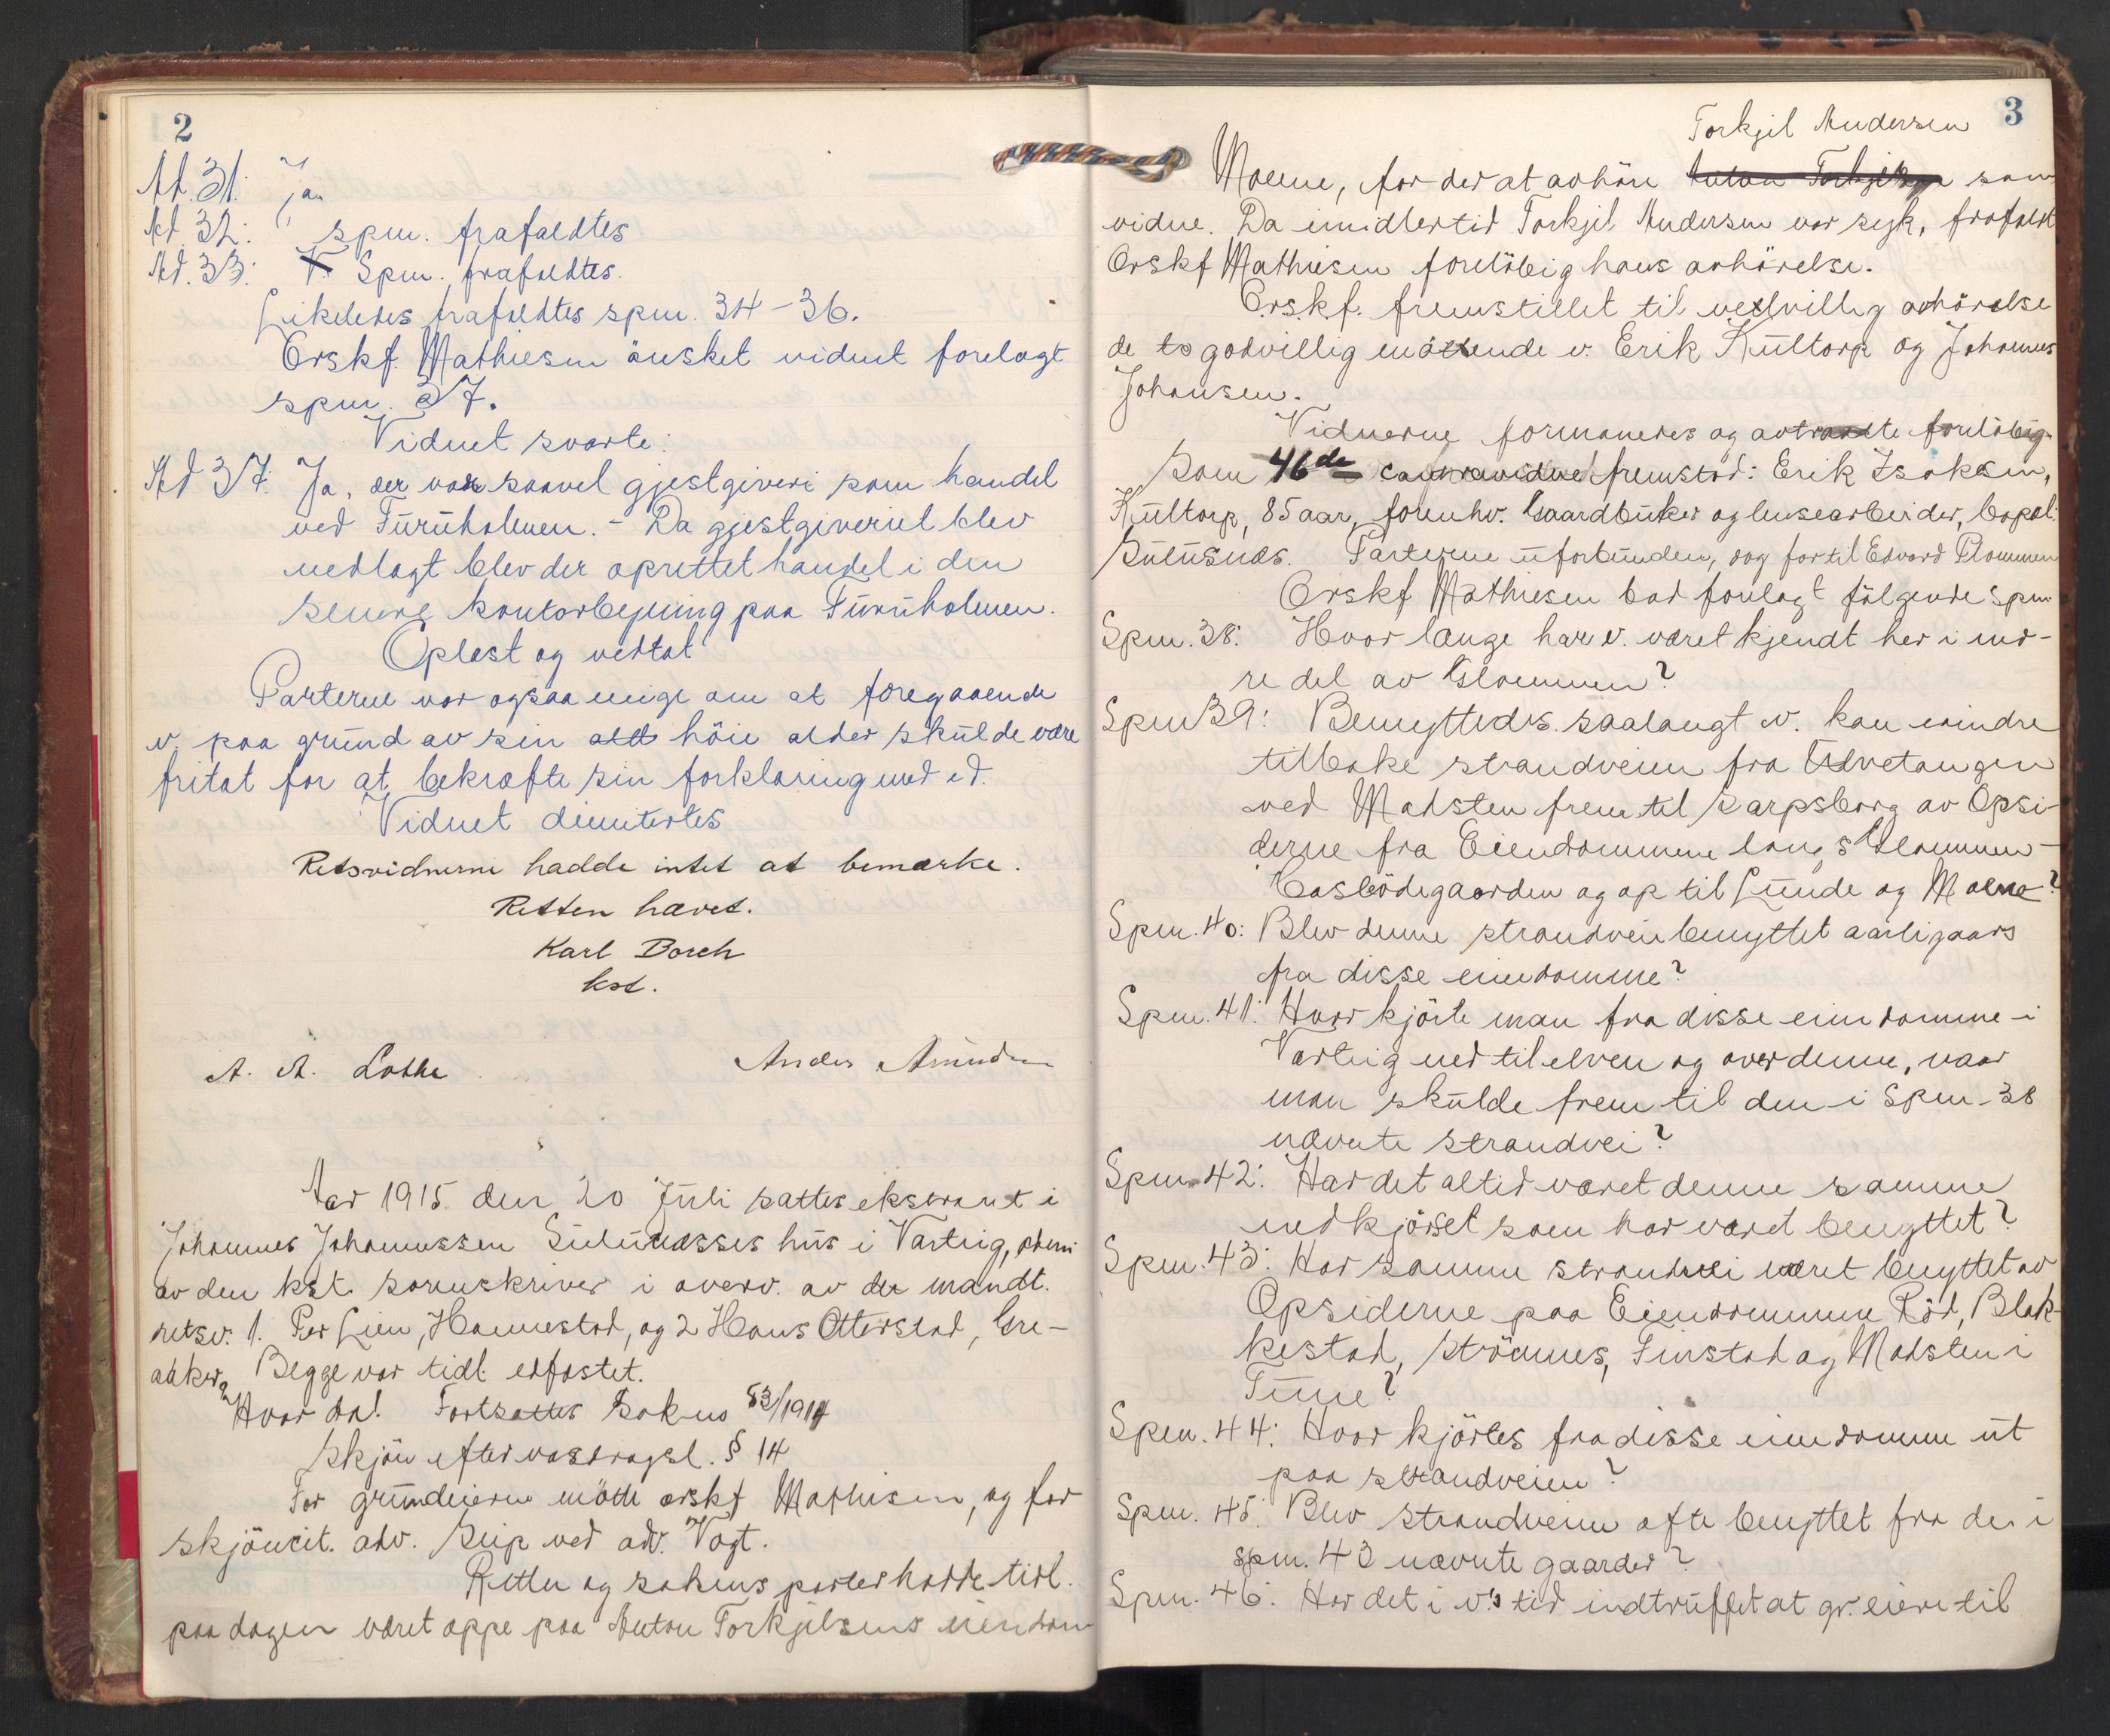 2
Ad. 31: Ja
Ad. 32: spm. frafaldtes
Ad. 33: Spm. frafaldtes.
Likeledes frafaldtes spm. 34-36.
Orskf. Mathiesen önsket vidnet forelagt
spm. 37.
Vidnet svarte:
Ad 37: Ja, der var saavel gjestgiveri som handel
ved Furuholmen. - Da gjestgiveriet blev
nedlagt blev der oprettet handel i den
senere kontorbygning paa Furuholmen.
Oplæst og vedtat
Parterne var ogsaa enige om at foregaaende
v. paa grund av sin höie alder skulde være
fritat for at bekræfte sin forklaring med ed.
Vidnet dimitertes
Retsvidnerne hadde intet at bemærke.
Retten hævet.
Karl Borch
kst.
A. A. Lothe Anders Amundsen
Aar 1915 den 20 Juli sattes ekstraret i
Johannes Johannessen Sulusness hus i Varteig, adm.
av den kst. sorenskriver i overv. av de mandt.
retsv. 1. Per Lien, Hannestad, og 2 Hans Otterstad, Gre-
aaker. Begge var tidl edfæstet.
Hvorda! Fortsattes Sak no 83/1914
Skjön efter vasdragsl. § 14
For grundeierne mötte orskf Mathisen, og for
skjöncit. adv. Seip ved adv. Vogt.
Retten og sakens parter hadde tidl.
paa dagen været oppe paa Anton Torkjelsens eiendom
3
Torkjil Andersen
Moene, for der at avhöre Anton Torkjelsen som
vidne. Da imidlertid Torkjil Andersen var syk, frafaldt
Orskf Mathiesen forelöbig hans avhörelse.
Orskf. fremstillet til vedvillig avhörelse
de to godvillig mötende v. Erik Kultorp og Johannes
Johansen.
Vidnerne formanedes og avtraadte forelöbig.
Som 46de vidne fremstod: Erik Isaksen,
Kultorp, 85 aar, forenhv. Gaardbruker og lensearbeider, bopæl:
Sulusnes. Parterne uforbunden, dog for til Edvard Plommen
Orskf Mathiesen bad forelagt fölgende spm
Spm. 38: Hvor længe har v. været kjendt her i ind-
re del av Glommen?
Spm 39: Benyttedes saalangt v. kan erindre
tilbake strandveien fra Udvetangen
ved Madsten frem til Sarpsborg av Opsi-
derne fra Eiendommene langs Glommen -
Basbödegaarden og op til Lunde og Moene?
Spm. 40: Blev denne strandvei benyttet aarligaars
fra disse eiendomme?
Spm. 41: Hvor kjörte man fra disse eiendomme i
Varteig ned til elven og over denne, naar
man skulde frem til den i Spm. 38
nævnte strandvei?
Spm. 42: Har det altid været denne samme
nedkjörsel som har været benyttet?
Spm. 43: Har samme strandvei været benyttet av
Opsiderne paa Eiendommene Röd, Blak-
kestad, Strömnes, Finstad og Madsten i
Tune?
Spm. 44: Hvor kjörtes fra disse eiendomme ut
paa strandveien?
Spm. 45: Blev strandveien ofte benyttet fra de i
spm. 43 nævnte gaarder?
Spm. 46: Har det i v's tid indtruffet at gr. eiere til